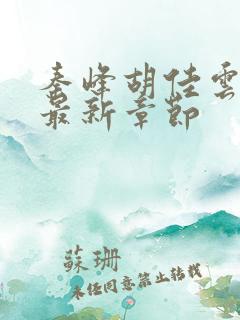 秦峰胡佳雲
最新章節
蘇珊
未任同意禁止转载